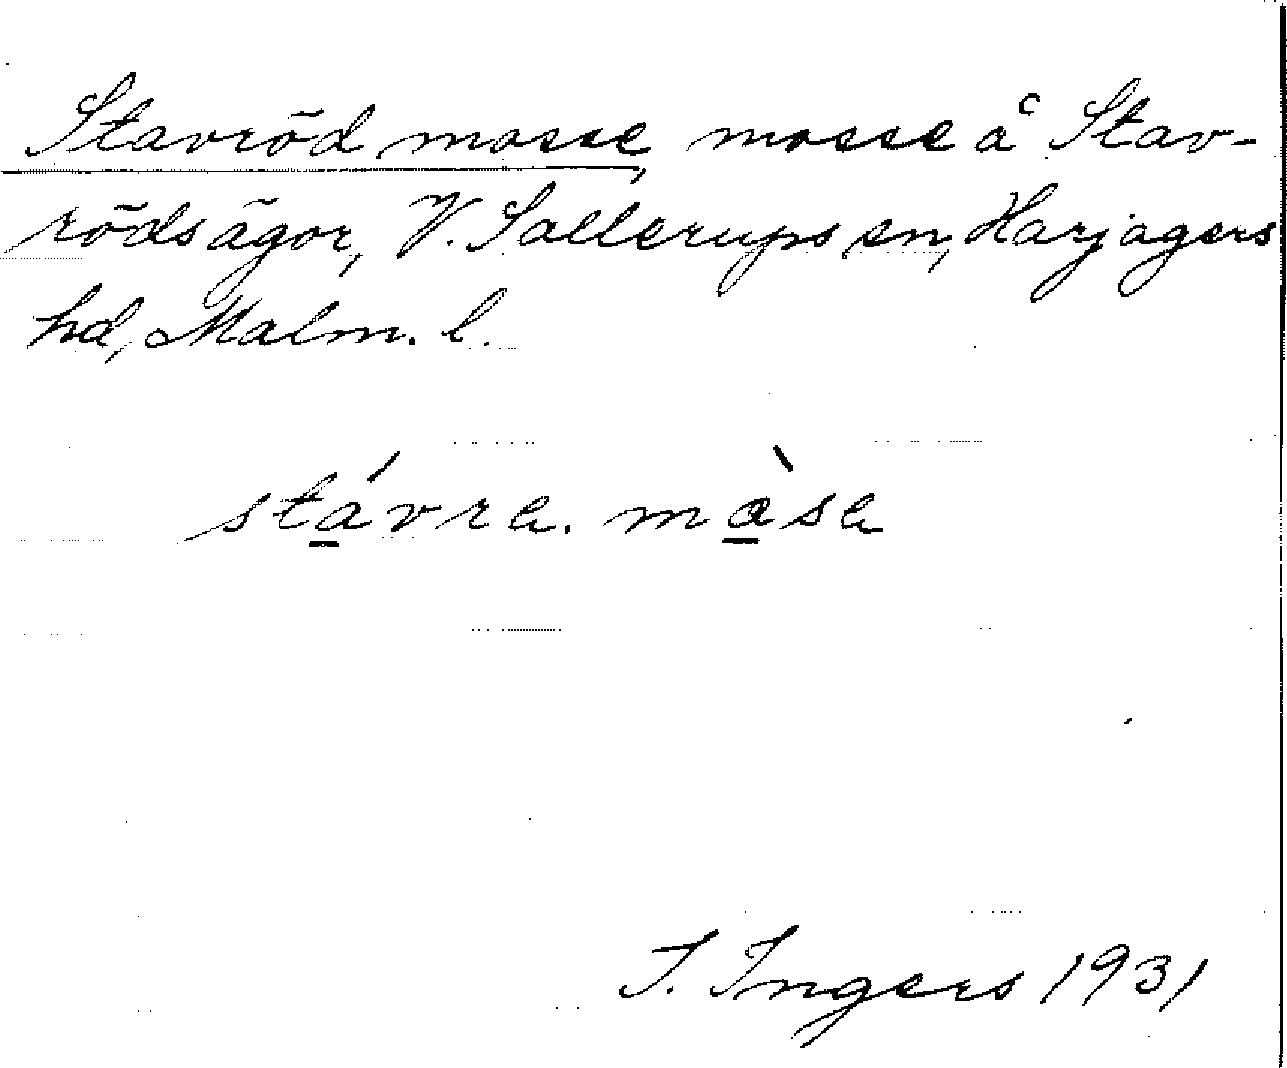 Stavröd mosse, mosse å Stav-
rödsägor, V. Sallerups sn, Harjagers
hd, Malm. l.
stávra. màsa
I. Ingers 1931